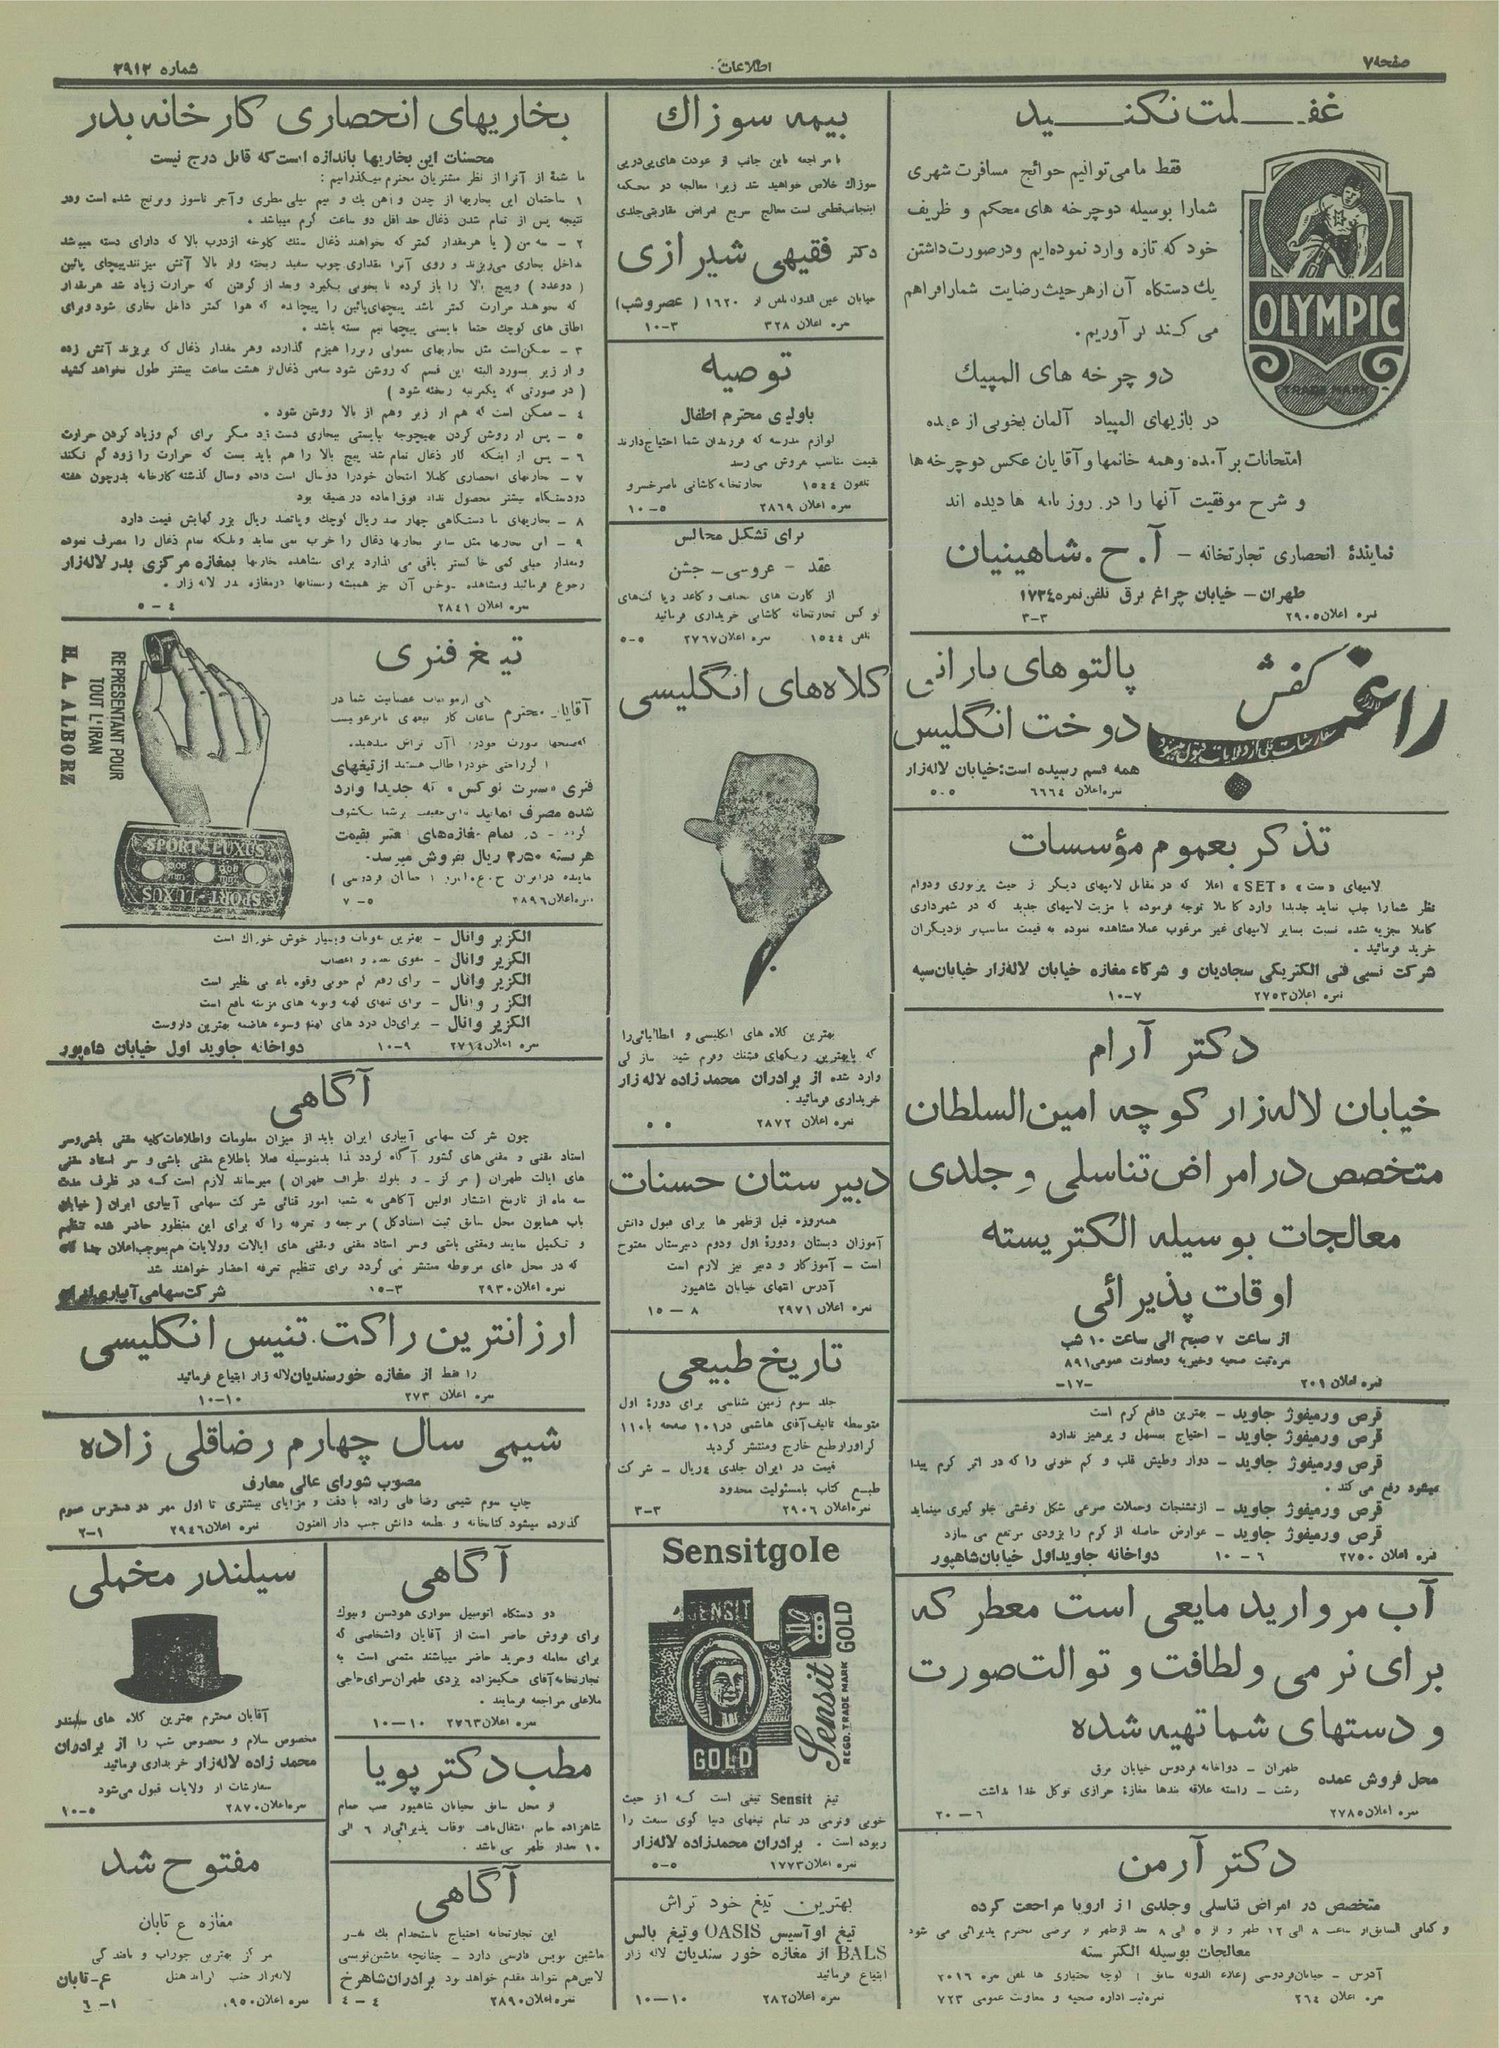 صفحه ۷
اطلاعات
شماره ۲۹۱۲
غفلت نکنید
فقط ما می‌توانیم حوائج مسافرت شهری
شمارا بوسیله دوچرخه های محکم و ظریف
خود که تازه وارد نموده‌ایم و درصورت داشتن
یك دستگاه آن ازهرحیث رضایت شمارا فراهم
می کند بر آوریم.
دوچرخه های المپيك
در بازیهای المپیاد آلمان بخوبی از عهده
امتحانات بر آمده و همه خانمها و آقایان عکس دوچرخه ها
و شرح موفقیت آنها را در روزنامه ها دیده اند
نمایندهٔ انحصاری تجارتخانه - آ. ح. شاهینیان
طهران - خیابان چراغ برق تلفن نمره ۱۷۳۴
نمره اعلان ۲۹۰۵ ۳-۳
OLYMPIC
TRADE MARK
کفش
راغب
لاله‌زار
پالتوهای بارانی
دوخت انگلیس
همه قسم رسیده است: خیابان لاله‌زار
نمره اعلان ۶۶۶۴ ۵-۵
تذکر بعموم مؤسسات
لامپهای «ست» «SET» اعلا که در مقابل لامپهای دیگر از حیث پرنوری و دوام
نظر شمارا جلب نماید جدیدا وارد کاملا توجه فرموده با مزیت لامپهای جدید که در شهرداری
کاملا تجزیه شده نسبت بسایر لامپهای غیر مرغوب عملا مشاهده نموده به قیمت مناسب‌تر ازدیگران
خرید فرمائید.
شرکت نسبی فنی الکتریکی سجادیان و شرکاء مغازه خیابان لاله‌زار خیابان سپه
نمره اعلان ۲۷۵۳ ۷-۱۰
دکتر آرام
خیابان لاله‌زار کوچه امین‌السلطان
متخصص در امراض تناسلی و جلدی
معالجات بوسیله الکتریسته
اوقات پذیرائی
از ساعت ۷ صبح الی ساعت ۱۰ شب
نمره ثبت صحیه و خیریه و معاونت عمومی ۸۹۱
نمره اعلان ۲۰۱ -۱۷-
قرص ورمیفوژ جاوید - بهترین دافع کرم است
قرص ورمیفوژ جاوید - احتیاج بمسهل و پرهیز ندارد
قرص ورمیفوژ جاوید - دوار وطپش قلب و کم خونی را که در اثر کرم پیدا
میشود رفع می کند.
قرص ورمیفوژ جاوید - ازتشنجات وحملات صرعی شکل وغشی جلو گیری مینماید
قرص ورمیفوژ جاوید - عوارض حاصله از کرم را بزودی مرتفع می سازد
نمره اعلان ۲۷۵۰ ۶-۱۰ دواخانه جاوید اول خیابان شاهپور
آب مروارید مایعی است معطر که
برای نرمی و لطافت و توالت صورت
و دستهای شما تهیه شده
محل فروش عمده
طهران - دواخانه فردوس خیابان برق
رشت - راسته علاقه بندها مغازهٔ خرازی توکل خدا
نمره اعلان ۲۷۸۵ ۶-۲۰
دکتر آرمن
متخصص در امراض تناسلی وجلدی از اروپا مراجعت کرده
و کمافی السابق از ساعت ۸ الی ۱۲ ظهر و از ۵ الی ۸ بعد ازظهر از مرضی محترم پذیرائی می شود
معالجات بوسیله الکتریسته
آدرس - خیابان فردوسی (علاء الدوله سابق) کوچه بختیاری ها تلفن نمره ۲۰۱۶
نمره اعلان ۲۶۴ نمره ثبت اداره صحیه و معاونت عمومی ۷۲۳
بیمه سوزاك
با مراجعه باین جانب از عودت های پی‌درپی
سوزاك خلاص خواهید شد زیرا معالجه در محکمه
اینجانب قطعی است معالج سریع امراض مقاربتی جلدی
دکتر فقیهی شیرازی
خیابان عین الدوله تلفن ۱۶۲۰ (عصروشب)
نمره اعلان ۳۲۸ ۳-۱۰
توصیه
باولیای محترم اطفال
لوازم مدرسه که فرزندان شما احتیاج دارند
بقیمت مناسب بفروش می رسد
تلفون ۱۵۴۴ تجارتخانه کاشانی ناصرخسرو
نمره اعلان ۲۸۶۹ ۵-۱۰
برای تشکیل مجالس
عقد - عروسی - جشن
از کارت های مختلف و کاغذ
لوکس تجارتخانه کاشانی خریداری فرمائید
تلفن ۱۵۴۴ نمره اعلان ۲۷۶۷ ۵-۵
کلاه‌های انگلیسی
بهترین کلاه های انگلیسی و ایطالیائی را
که بابهترین رنگهای قشنگ وفرم
وارد شده از برادران محمدزاده لاله‌زار
خریداری فرمائید.
نمره اعلان ۲۸۷۲ ۵-۵
دبیرستان حسنات
همه‌روزه قبل ازظهر ها برای قبول دانش
آموزان دبستان ودورهٔ اول ودوم دبیرستان مفتوح
است - آموزگار و دبیر نیز لازم است
آدرس انتهای خیابان شاهپور
نمره اعلان ۲۹۷۱ ۸-۱۵
تاریخ طبیعی
جلد سوم زمین شناسی برای دورهٔ اول
متوسطه تالیف آقای هاشمی در ۱۰۱ صفحه با ۱۱۰
گراور از طبع خارج ومنتشر گردید
قیمت در ایران جلدی ٤ ریال - شرکت
طبع کتاب بامسئولیت محدود
نمره اعلان ۲۹۰۶ ۳-۳
Sensitgole
SENSIT
GOLD
Sensit
GOLD
REGD. TRADE MARK
تیغ Sensit تیغی است که از حیث
خوبی ونرمی در تمام تیغهای دنیا گوی سبقت را
ربوده است. برادران محمدزاده لاله‌زار
نمره اعلان ۱۷۷۳ ۵-۵
بهترین تیغ خود تراش
تیغ اوآسیس OASIS و تیغ بالس
BALS از مغازه خورسندیان لاله زار
ابتیاع فرمائید
نمره اعلان ۲۸۲ ۱۰-۱۰
بخاریهای انحصاری کارخانه بدر
محسنات این بخاریها باندازه است که قابل درج نیست
ما شمهٔ از آنرا از نظر مشتریان محترم میگذرانیم:
۱ ساختمان این بخاریها از چدن و آهن يك و نیم میلی‌متری وآجر ناسوز و برنج شده است ودر
نتیجه پس از تمام شدن ذغال حد اقل دو ساعت گرم میباشد.
۲ - سه من (یا هر مقدار کمتر که بخواهند ذغال سنك کلوخه ازدرب بالا که دارای دسته میباشد
بداخل بخاری میریزند و روی آنرا مقداری چوب سفید ریخته واز بالا آتش میزنند پیچهای پائین
(دوعدد) و پیچ بالا را باز کرده تا بخوبی بگیرد وبعد از گرفتن که حرارت زیاد شد هر مقدار
که بخواهند حرارت کمتر باشد پیچهای پائین را پیچانده که هوا کمتر داخل بخاری شود وبرای
اطاق های کوچك حتما بایستی پیچها نیم بسته باشد.
۳ - ممکن است مثل بخاریهای معمولی زیررا هیزم گذارده وهر مقدار ذغال که بریزند آتش زده
و از زیر بسوزد البته این قسم که روشن شود سه‌من ذغال از هشت ساعت بیشتر طول نخواهد کشید
(در صورتی که یکمرتبه ریخته شود)
٤ - ممکن است که هم از زیر وهم از بالا روشن شود.
۵ - پس از روشن کردن بهیچوجه نبایستی ببخاری دست زد مگر برای کم وزیاد کردن حرارت
۶ - پس از اینکه گاز ذغال تمام شد پیچ بالا را هم باید بست که حرارت را زود گم نکند
۷ - بخاریهای انحصاری کاملا امتحان خودرا دوسال است داده وسال گذشته کارخانه بدرچون هفته
دودستگاه بیشتر محصول نداد فوق‌العاده درمضیقه بود
۸ - بخاریهای ما دستگاهی چهار صد ریال کوچك وپانصد ریال بزرگهایش قیمت دارد
۹ - این بخاریها مثل سایر بخاریها ذغال را خراب نمی نماید وبلکه تمام ذغال را مصرف نموده
ومقدار خیلی کمی خاکستر باقی می گذارد برای مشاهده بخاریها بمغازه مرکزی بدر لاله‌زار
رجوع فرمائید
نمره اعلان ۲۸۴۱ ٤-۵
تیغ فنری
آقایان محترم
که صبحها صورت خودرا با آن تراش میدهید.
اگر راحتی خودرا طالب هستید از تیغهای
فنری «سپرت لوکس» که جدیدا وارد
شده مصرف نمائید تا این حقیقت برشما مکشوف
گردد - در تمام مغازه‌های معتبر بقیمت
هر بسته ۴٫۵۰ ریال بفروش میرسد.
نمره اعلان ۲۸۹۶ ۵-۷
REPRESENTANT POUR
TOUT L'IRAN
H. A. ALBORZ
SPORT-LUXUS
SPORT-LUXUS
الگزیر وانال - بهترین مقویات وبسیار خوش خوراك است
الگزیر وانال - مقوی معده و اعصاب
الگزیر وانال - برای رفع کم خونی وقوه باء بی نظیر است
الگزیر وانال - برای تبهای کهنه ونوبه های مزمنه نافع است
الگزیر وانال - برای‌دل درد های وسوء هاضمه بهترین داروست
نمره اعلان ۲۷۱۴ ۹-۱۰ دواخانه جاوید اول خیابان شاه‌پور
آگاهی
چون شرکت سهامی آبیاری ایران باید از میزان معلومات واطلاعات کلیه مقنی باشی وسر
استاد مقنی و مقنی های کشور آگاه گردد لذا بدینوسیله فعلا باطلاع مقنی باشی و سر استاد مقنی
های ایالت طهران (مرکز - و بلوك اطراف طهران) میرساند لازم است که در ظرف مدت
سه ماه از تاریخ انتشار اولین آگاهی به شعبه امور قنائی شرکت سهامی آبیاری ایران (خیابان
باب همایون محل سابق ثبت اسناد کل) مراجعه و تعرفه را که برای این منظور حاضر شده تنظیم
و تکمیل نمایند ومقنی باشی وسر استاد مقنی ومقنی های ایالات وولایات هم بموجب اعلان جداگانه
که در محل های مربوطه منتشر می گردد برای تنظیم تعرفه احضار خواهند شد
نمره اعلان ۲۹۳۰ ۳-۱۵ شرکت سهامی آبیاری ایران
ارزانترین راکت تنیس انگلیسی
را فقط از مغازه خورسندیان لاله زار ابتیاع فرمائید
نمره اعلان ۲۷۳ ۱۰-۱۰
شیمی سال چهارم رضاقلی زاده
مصوب شورای عالی معارف
چاپ سوم شیمی رضا قلی زاده با دقت و مزایای بیشتری تا اول مهر در دسترس عموم
گذارده میشود کتابخانه و مطبعه دانش جنب دار الفنون نمره اعلان ۲۹۴۶ ۱-۲
آگاهی
دو دستگاه اتومبیل سواری هودسن و بیوك
برای فروش حاضر است از آقایان واشخاصی که
برای معامله وخرید حاضر میباشند متمنی است به
تجارتخانه آقای حکیمزاده یزدی طهران سرای حاجی
ملاعلی مراجعه فرمایند.
نمره اعلان ۲۷۶۳ ۱۰-۱۰
مطب دکتر پویا
از محل سابق بخیابان شاهپور جنب حمام
شاهزاده خانم انتقال یافت اوقات پذیرائی از ۶ الی
۱۰ بعداز ظهر می باشد.
آگاهی
این تجارتخانه احتیاج باستخدام يك نفر
ماشین نویس فارسی دارد - چنانچه ماشین‌نویسی
لاتین‌هم بتواند مقدم خواهد بود برادران شاهرخ
نمره اعلان ۲۸۹۰ ٤-٤
سیلندر مخملی
آقایان محترم بهترین کلاه های سیلندر
مخصوص سلام و مخصوص شب را از برادران
محمد زاده لاله‌زار خریداری فرمائید
سفارشات از ولایات قبول می‌شود
نمره اعلان ۲۸۷۰ ۵-۱۰
مفتوح شد
مغازه ع تابان
مرکز بهترین جوراب و بافندگی
لاله‌زار جنب گراند هتل ع-تابان
نمره اعلان ۹۵۰ ۱-۶